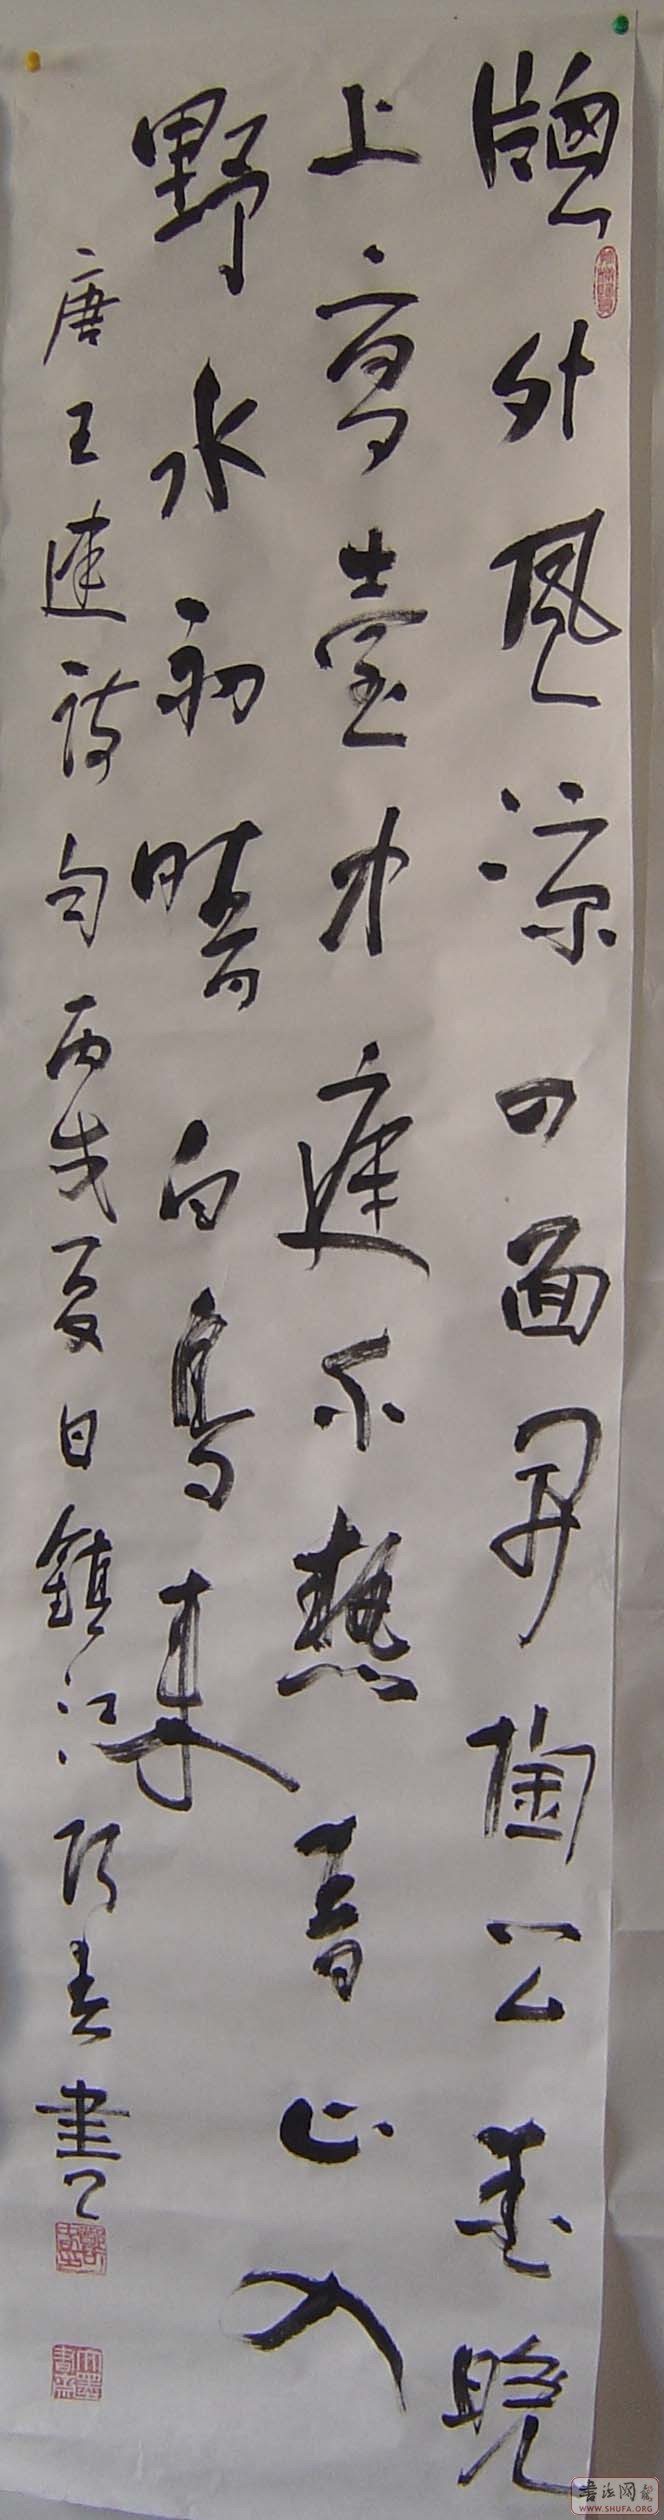 牕外風涼四面開陶公愛晚
上高臺中庭不熱青山入
野水初晴白鳥來
唐王建詩句丙戌夏日鎮江春書
書法网
WWW.SHUFA.ORG